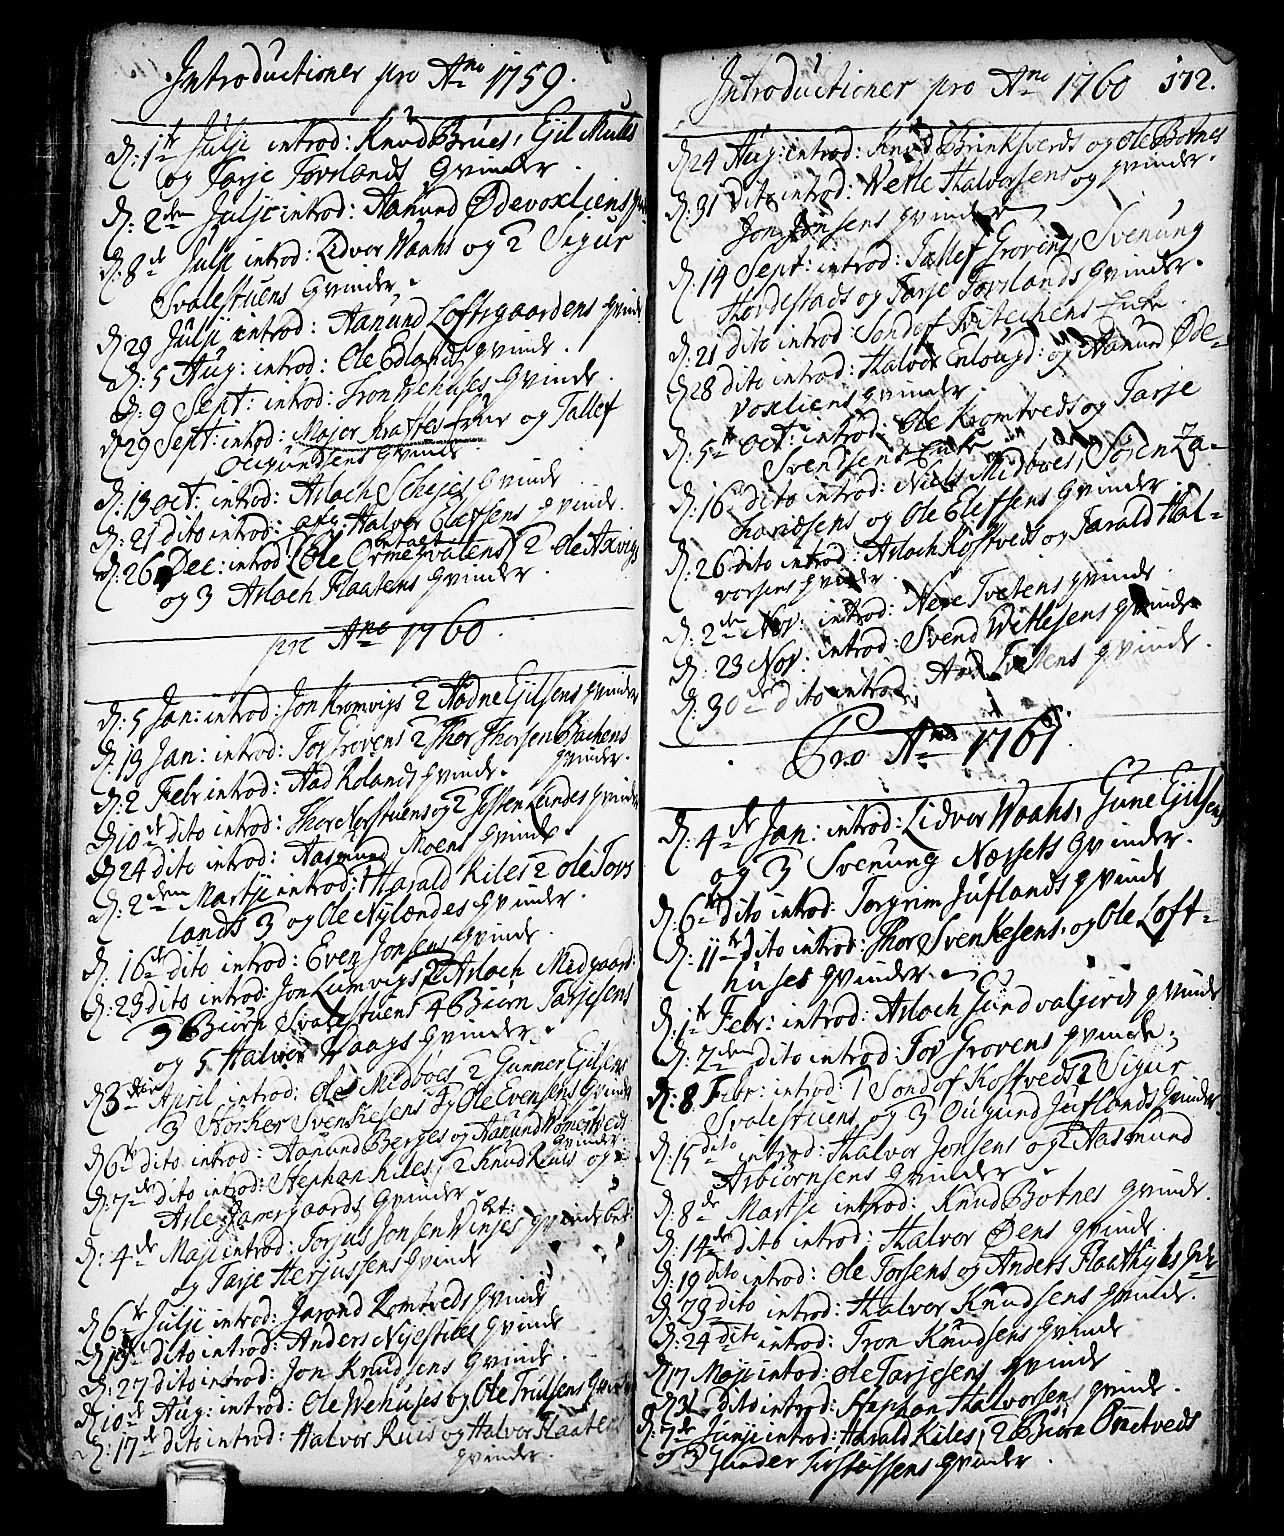 Introductioner pro Ano 1759.
D: 1te Julji introd: Knud Brues, Ejil Mules
og Tarje Torvlands Qvinder.
D: 2den Julji introd: Aanund Ødevoxliens
D: 8de Julji introd: Lidvor Waahs og 2 Sigur
Svalestuens Qvinder.
D: 29 Julji introd: Aanund Loftsgaardens Qvinde
D: 5 Aug: introd: Ole Edlands Qvinde.
D: 9 Sept: introd: Tron Wehuses Qvinde.
D: 29 Sept: introd: Majer Kraftes Frue og Tallef
Ougundsens Qvinde
D: 13 Oct: introd: Aslach Schejes Qvinde
D: 21 dito introd: Halvor Olevsens Qvinde.
D: 26 Dec: introd Ole Ormezvatens 2 Ole Aavigs
og 3 Aslach Flaatens Qvinder.
pro Ano 1760.
D: 5 Jan: introd: Jon Kromvigs 2 Aadne Ejilsens Qvinder
D: 13 Jan: introd: Tov Grovens 2 Thor Thorsen Bachens
Qvinder.
D: 2 Febr introd: Aad Rolands Qvinde.
D: 10de dito introd: Thore Norstuens og 2 Josten Lundes Qvinder
D: 24 dito introd: Aasmund Moens Qvinde.
D: 2den Martji introd: 1 Harald Kiles 2 Ole Torv
lands 3 og Ole Nylændes Qvinder.
D: 16de dito introd: Even Jonsens Qvinde.
D: 23 dito introd: Jon Lumvigs 2 Aslach Midgaard:
3 Biørn Svalestuens 4 Biørn Tarjesens
og 5 Halvor Haags Qvinder.
D: 3die April introd: Ole Midboes 2 Gunner Ejilsens
3 Storker Svenkesens 4 Ole Evensens Qvinder
D: 6te dito introd: Aanund Berges og Aanund
Qvinder.
D: 7de dito introd: Stephan Kiles, 2 Knud Ruis og
Asle Qvinder
D: 4de Maji introd: Torjus Jonsen Vinjes Qvinde bet:
og Tarje Herjussens Qvinde
D: 6te Julji introd: Jarand Romtveds Qvinde
D: 13de dito introd: Anders Nyestules Qvinde
D: 27 dito introd: Jon Knudsens Qvinde.
D: 10de Aug: introd: Ole Wehuses og Ole Trulsens
D: 17de dito introd: Halvor Ruis og Halvor Flaatens
Qvinder.
Introductioner pro Ano 1760 172.
D: 24 Aug: introd: Knud Brinksverds og Ole Botnes
Qvinder.
D: 31 dito introd: Vetle Halvorsens og
Jon Jonsens Qvinder
D: 14 Sept: introd: Tallef Grovens, Svenung
Hordestads og Tarje Torvlands Qvinder.
D: 21 dito introd: Sondof Enke.
D: 28 dito introd: Halvor Enlougd: og Aanund Øde-
voxliens Qvinder.
D: 5te Oct: introd: Ole Kromtveds og Tarje
Svendsens
D: 16 dito introd: Niels Midboes, Søren Za-
chariæsens og Ole Eleffsens Qvinder.
D: 26 dito introd: Aslach Kostveds og Tarald Hal-
vorsens Qvinder.
D: 2den Nov: introd: Neve Tvetens Qvinde.
D: 23 Nov: introd: Svend Wetlesens Qvinde
D: 30de dito introd: Aad Tvetens Qvinde.
Pro Ano 1761.
D: 4de Jan: introd: Lidvor Waahs, Gune Ejilsens
og 3 Svenung Næssets Qvinder.
D: 6te dito introd: Torgrim Juflands Qvinde
D: 11te dito introd: Thor Svenkesens, og Ole Loft-
huses Qvinder.
D: 1te Febr: introd: Aslach Gundvaljords Qvinde
D: 2den dito introd: Tov Grovens Qvinde;
D: 8 Febr: introd: 1 Sondof Kostveds 2 Sigur
Svalestuens og 3 Ougund Juflands Qvinder
D: 15 dito introd: Halvor Jonsens og Aasmund
Asbiørnsens Qvinder
D: 8de Martji introd: Knud Botnes Qvinde.
D: 14de dito introd: Halvor Øens Qvinde.
D: 19 dito introd: Ole Torsens og Anders Flaathyls
D: 23 dito introd: Halvor Knudsens Qvinde.
D: 24 dito introd: Tron Knudsens Qvinde
D: 17 Maji introd: Ole Tarjesens Qvinde
D: 31 dito introd: Stephan Halvorsens Qvinde.
D: 7de Junji introd: Harald Kiles, 2 Biørn Ønetveds
og 3 Qvinder.